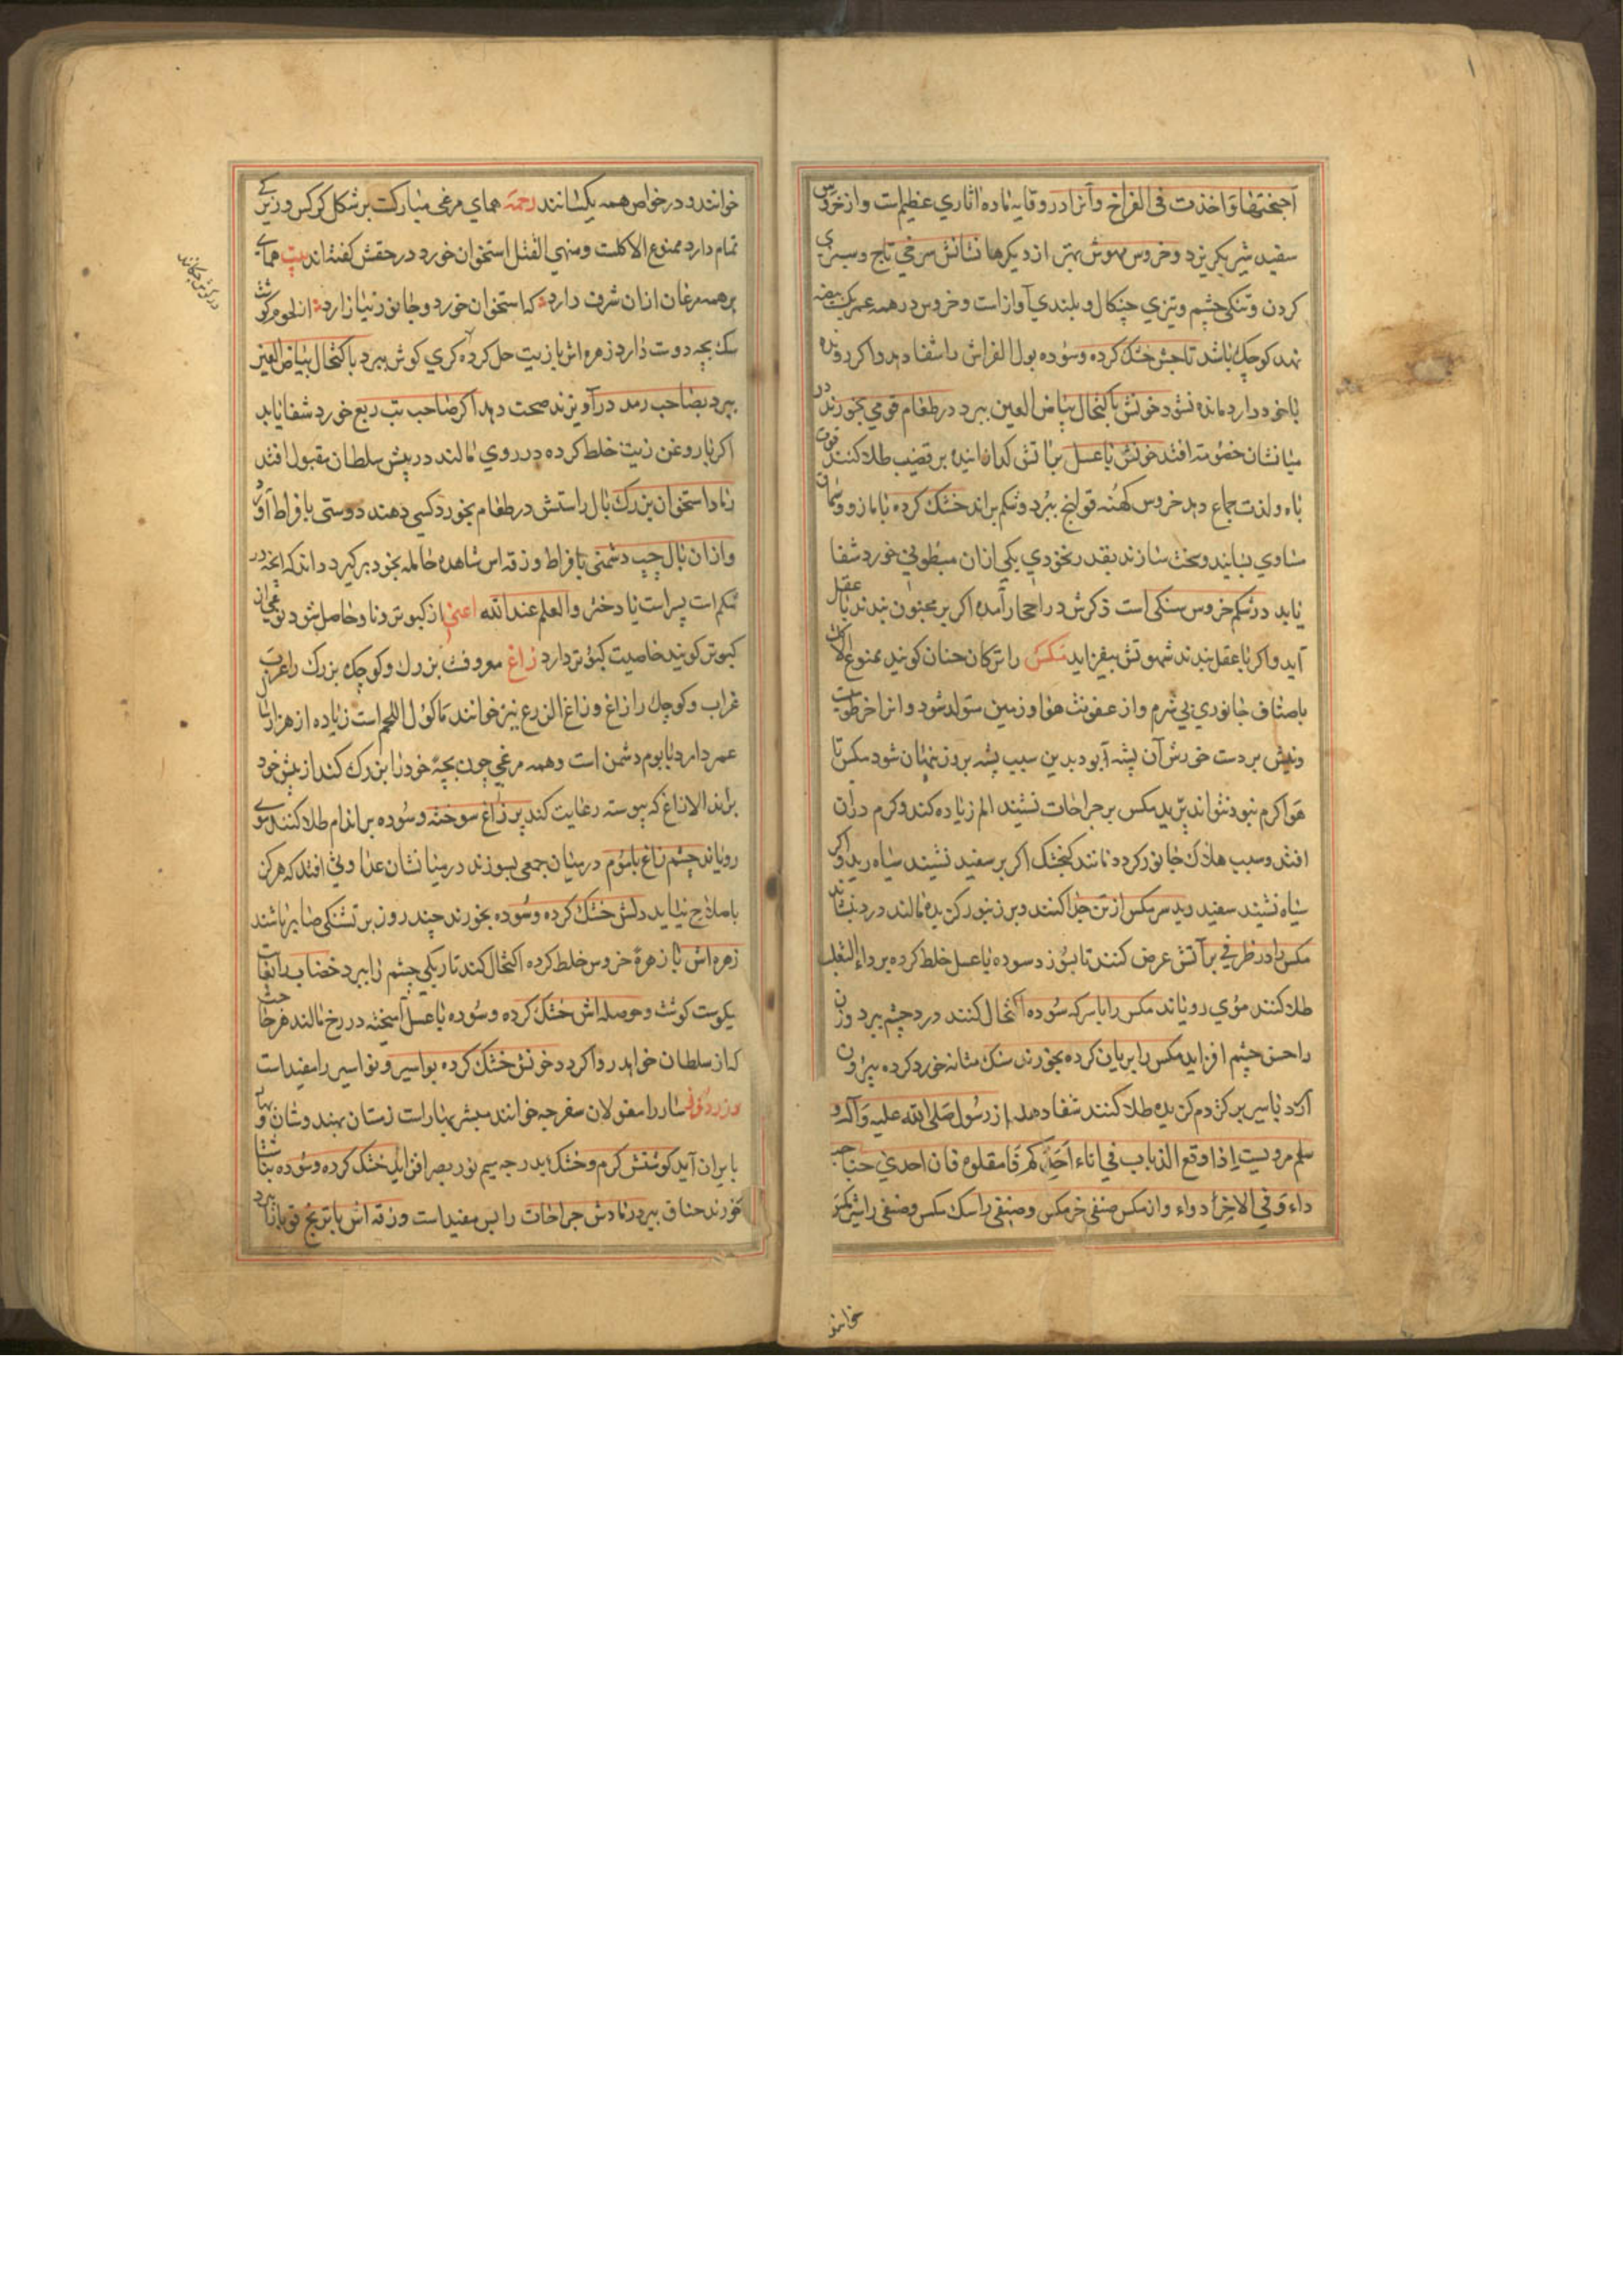 اجنحتها واخذت فی الفراخ وآنرا در وقایه ماده اثاری عظیم است و از خروس
سفید شیر بکریزد و خروس بهوش بهتر از دیکرها نشانش سرخی تاج و سبزی
کردن و تنکی چشم و تیزی چنکال و بلندی آواز است و خروس در همه عمر یک بیضه
نهد کوچک باشد تاجش خشک کرده و سوده بول الفراش را شفا دهد و اکر درنده
با خود دارد مانده نشود خونش باکتحال بیاض العین ببرد در طعام قومی بخورند در
میانشان خصومت افتد خونش با عسل بر آتش کدازانیده بر قضیب طلا کنند قوت
باه و لذت جماع دهد خروس کهنه قولنج ببرد و شکم براند خشک کرده با مازو و سماق
مساوی بسایند و سخت سازند بقدر نخودی یکی از ان مبطونی خورد شفا
یابد در شکم خروس سنکی است ذکرش در احجار آمده اکر بر مجنون بندند با عقل
آید و اکر با عقل بندند شهوتش بیفزاید مکس را ترکان جنان کویند ممنوع الاکل
باصناف جانوری بی شرم و از عفونت هوا و زمین متولد شود و انرا خرطومیست
ونیش بردست خورش آن پشه بود بدین سبب پشه بروز پنهان شود مکس تا
هوا کرم نبود نتواند پرید مکس بر جراحات نشیند الم زیاده کند و کرم دران
افتد و سبب هلاک جانور کردد مانند کنجشک اکر بر سفید نشیند سیاه رید و اکر
سیاه نشیند سفید رید سر مکس از تن جدا کنند و بر زنبور کزیده مالند درد بنشاند
مکس را در ظرفی بر آتش عرض کنند تا بسوزد سوده با عسل خلط کرده بر داء الثعلب
طلا کنند موی رویاند مکس را با سرکه سوده اکتحال کنند درد چشم ببرد و زن
را حسن چشم افزاید مکس را بریان کرده بخورند سنک مثانه خورد کرده بیرون
آرد با سیر بر کژدم کزیده طلا کنند شفا دهد از رسول صلی الله علیه وآله و
سلم مرویست اذا وقع الذباب فی اناء احدکم فامقلوه فان احدی جناحیه
داء وفی الاخر دواء وان مکس صنفی خرمکس و صنفی را سک مکس و صنفی را شیر مکس
خوانند
خوانند و در خواص همه یکسانند رحمة همای مرغی مبارکست بر شکل کرکس و زیرکی
تمام دارد ممنوع الاکلست و منهی القتل استخوان خورد در حقش کفته‌اند بیت همای
بر همه مرغان ازان شرف دارد که استخوان خورد و جانور نیازارد از لحوم کوشت
سک بچه دوست دارد زهره اش با زیت حل کرده کری کوش ببرد باکتحال بیاض العین
ببرد بصاحب رمد درآویزند صحت دهد اکر صاحب تب ربع خورد شفا یابد
اکر با روغن زیت خلط کرده در روی مالند در پیش سلطان مقبول افتد
استخوان بزرک بال راستش در طعام بخورد کسی دهند دوستی بافراط آورد
وازان بال چپ دشمنی بافراط و زقه اش شاهده حامله بخود برکیرد داند که انچه در
شکم است پسر است یا دختر والعلم عند الله از کبوتر و نا و حاصل شود
کبوتر کویند خاصیت کبوتر دارد زاغ معروف بزرک و کوچک بزرک را عرب
غراب و کوچک را زاغ و زاغ الزرع نیز خوانند ماکول اللحم است زیاده از هزار سال
عمر دارد با بوم دشمن است و همه مرغی چون بچهٔ خود را بزرک کند از پیش خود
براند الا زاغ که پیوسته رعایت کند پر زاغ سوخته و سوده بر اندام طلا کنند موی
رویاند چشم زاغ با بوم در میان جمعی بسوزند در میانشان عداوتی افتد که هرکز
باصلاح نیاید دلش خشک کرده و سوده بخورند چند روز بر تشنکی صابر باشند
زهره اش با زهرهٔ خروس خلط کرده اکتحال کند تاریکی چشم را ببرد خضاب را بغایت
نیکوست کوشت و حوصله اش خشک کرده و سوده با عسل آمیخته در رخ مالند هر حاجت
که از سلطان خواهد روا کردد خونش خشک کرده بواسیر و نواسیر را مفید است
سار را مغولان سغرجه خوانند مبشر بهار است زمستان بهندوستان و بهار
بایران آید کوشتش کرم و خشک بدرجه سیم نور بصر افزاید خشک کرده و سوده ناشتا
خورند خناق ببرد رمادش جراحات را بس مفید است و زقه اش با ترنج قوبا را ببرد